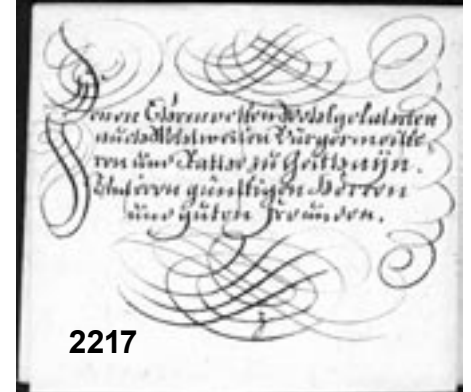 Denen Ehrenvesten Wohlgelahrten
auch Wohlweisen Bürgermeiste
ren und Rathe zu
Unseren günstigen Herren
und guten Freunden.
2217